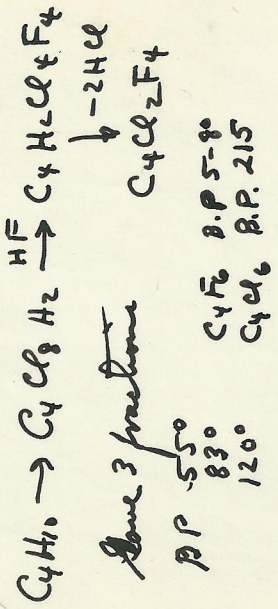 C4H10 → C4Cl8H2 HF → C4H2Cl4F4
↓ -2HCl
C4Cl2F4
Gave 3 fractions
BP 55°
83°
120°
C4F6 B.P 5-8°
C4Cl6 B.P. 215